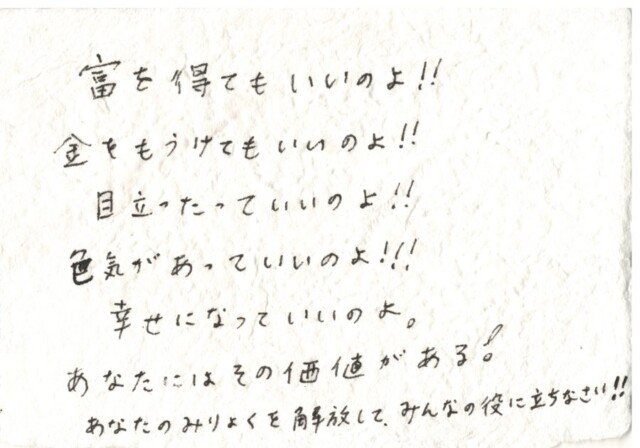 富を得てもいいのよ!!
金をもうけてもいいのよ!!
目立ったっていいのよ!!
色気があっていいのよ!!!
幸せになっていいのよ。
あなたにはその価値がある!
あなたのみりょくを解放して、みんなの役に立ちなさい!!